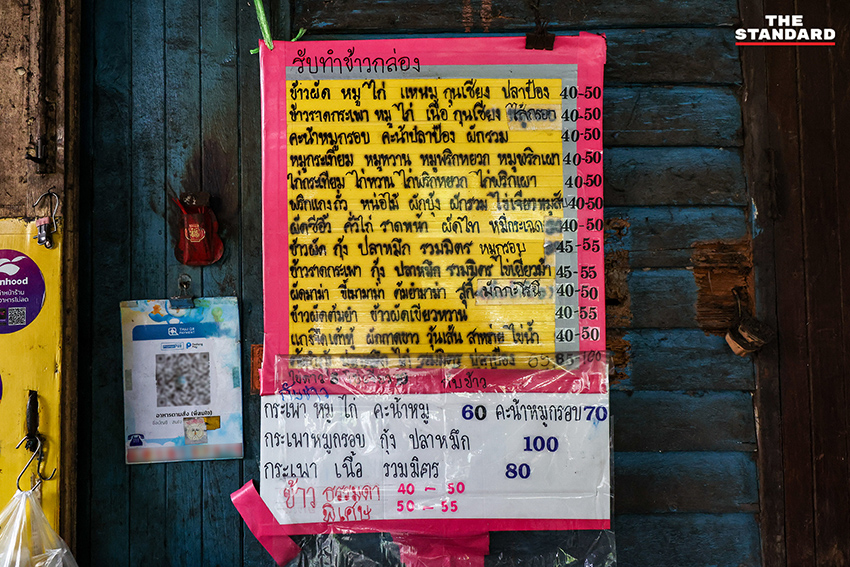 THE
STANDARD
รับทำข้าวกล่อง
ข้าวผัด หมู ไก่ แหนม กุนเชียง ปลาป๋อง 40-50
ข้าวราดกระเพา หมู ไก่ เนื้อ กุนเชียง ไส้กรอก 40-50
คะน้าหมูกรอบ คะน้าปลาป๋อง ผักรวม 40-50
หมูกระเทียม หมูหวาน หมูพริกหยวก หมูพริกเผา 40-50
ไก่กระเทียม ไก่หวาน ไก่พริกหยวก ไก่พริกเผา 40-50
พริกแกงถั่ว หน่อไม้ ผักบุ้ง ผักรวม ไข่เจียวหมูสับ 40-50
ผัดซีอิ๊ว คั่วไก่ ราดหน้า ผัดไท หมี่กระเฉด 40-50
ข้าวผัด กุ้ง ปลาหมึก รวมมิตร หมูกรอบ 45-55
ข้าวราดกระเพา กุ้ง ปลาหมึก รวมมิตร ไข่เยี่ยวม้า 45-55
ผัดมาม่า ขี้เมามาม่า ต้มยำมาม่า สุกี้ มักกะโรนี 40-50
ข้าวผัดต้มยำ ข้าวผัดเขียวหวาน 40-50
แกงจืดเต้าหู้ ผักกาดขาว วุ้นเส้น สาหร่าย ไข่น้ำ 40-50
85-100
กับข้าว
กระเพา หมู ไก่ คะน้าหมู 60 คะน้าหมูกรอบ 70
กระเพาหมูกรอบ กุ้ง ปลาหมึก 100
กระเพา เนื้อ รวมมิตร 80
ข้าว ธรรมดา 40 - 50
พิเศษ 50 - 55
อาหารตามสั่ง (พี่สมใจ)
nhood